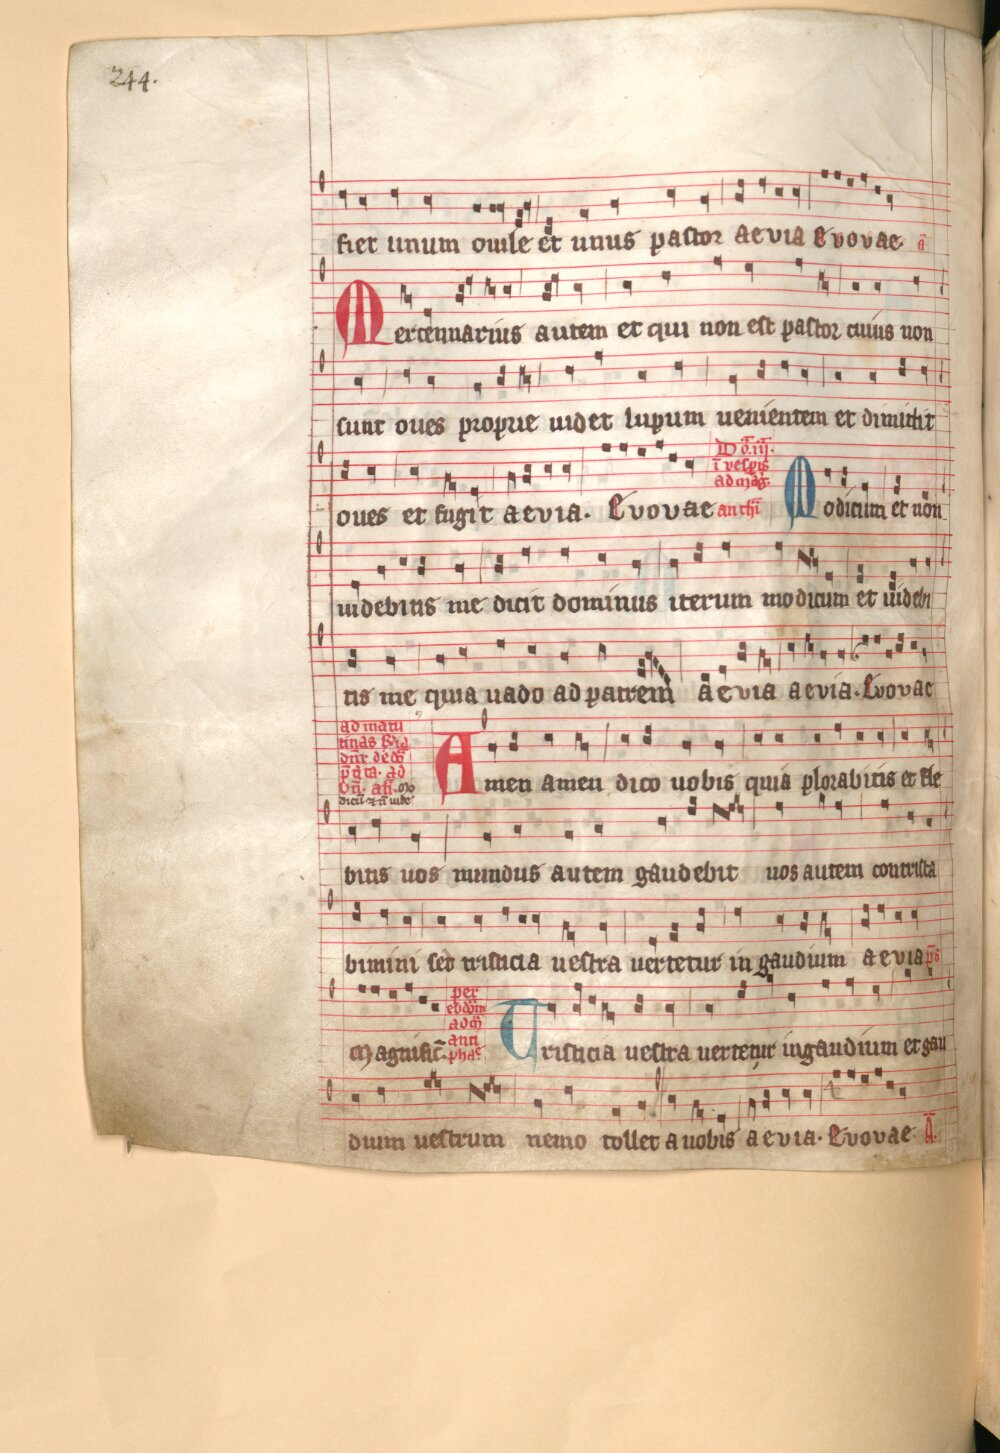 244.
fiet unum ouile et unus pastor aevia Evovae. a
Mercennarius autem et qui non est pastor cuius non
sunt oues proprie uidet lupum uenientem et dimittit
oues et fugit aevia. Evovae
Dō.iij. ī vesp̄is ad māg. anthī
Modicum et non
uidebitis me dicit dominus iterum modicum et uidebi
tis me quia uado ad patrem aevia aevia. Evovae
ad matu
tinas
Amen amen dico uobis quia plorabitis et fle
bitis uos mundus autem gaudebit uos autem contrista
bimini sed tristicia uestra uertetur in gaudium aevia p̄s
Magnific̄. per
anti
phas
Tristicia uestra uertetur in gaudium et gau
dium uestrum nemo tollet a uobis aevia. Evovae. A.